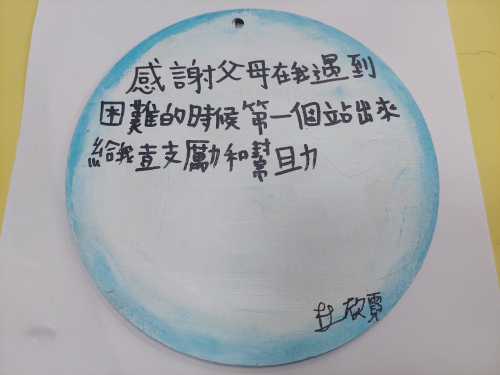 感謝父母在我遇到
困難的時候第一個站出來
給我鼓勵和幫助